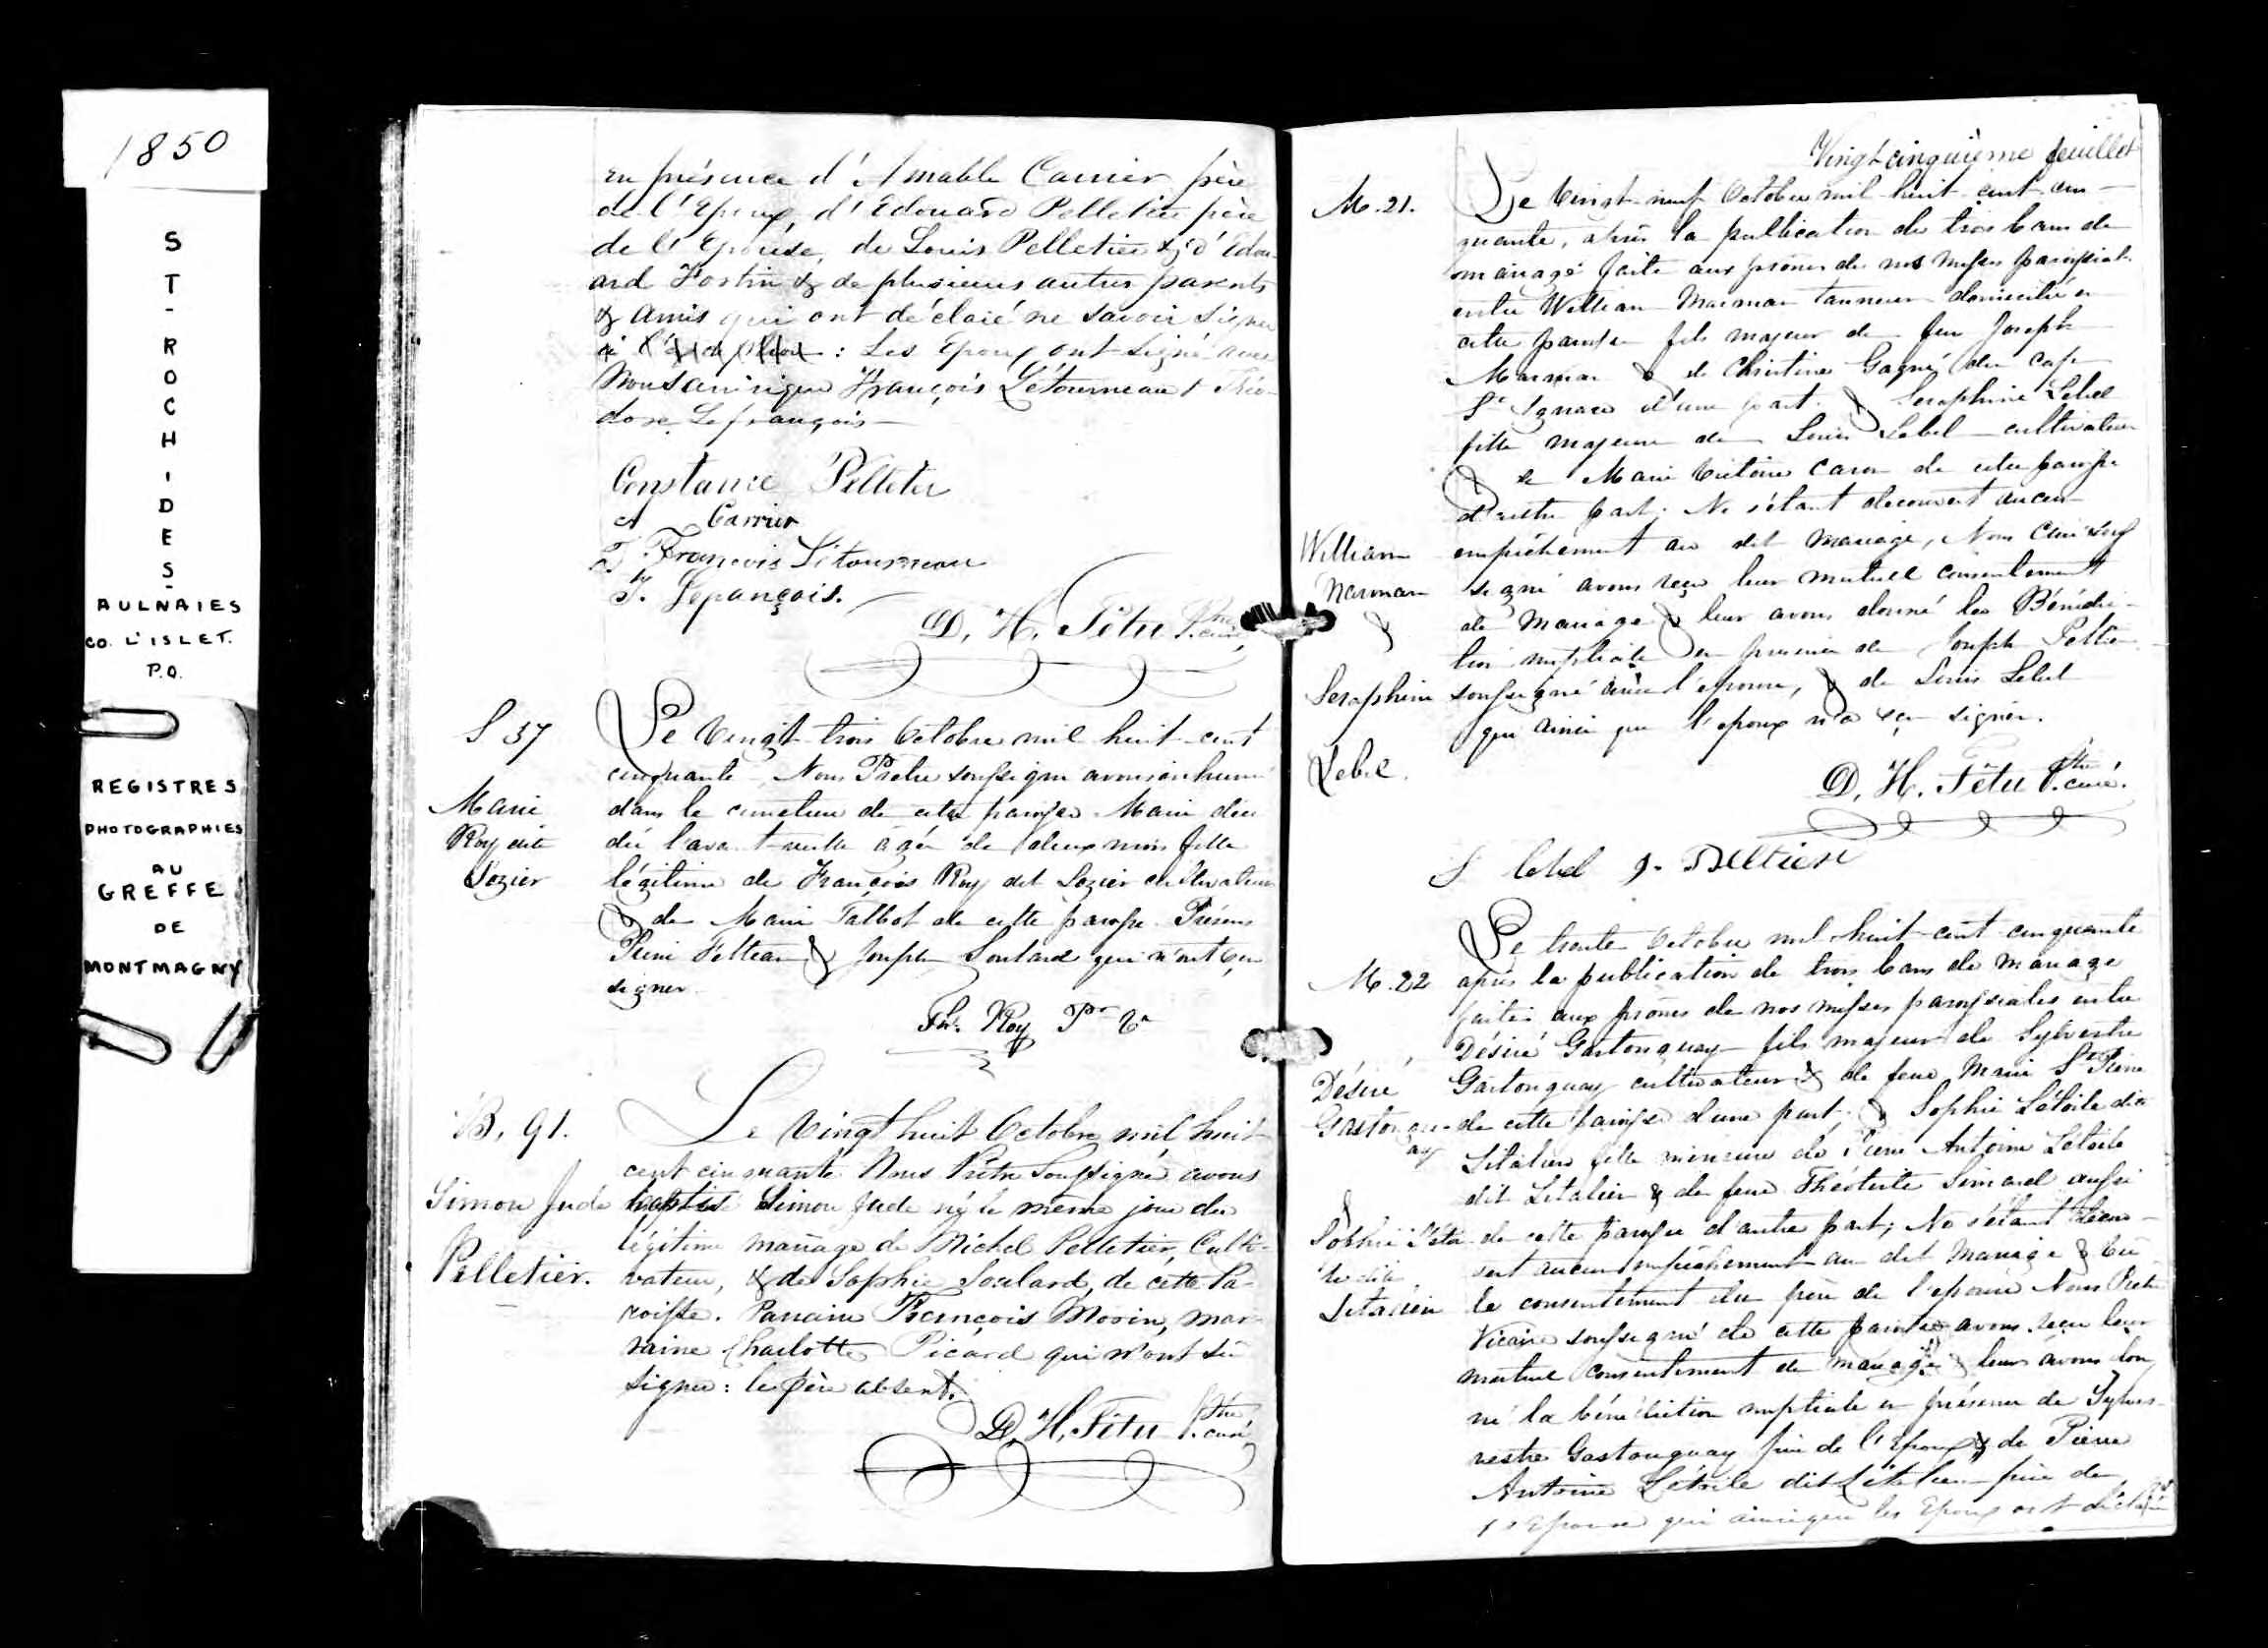 1850
ST-ROCH-DES-
AULNAIES
CO. L'ISLET.
P.Q.
REGISTRES
PHOTOGRAPHIES
AU
GREFFE
DE
MONTMAGNY
en présence d'Amable Carrier père
de l'Epoux, d'Edouard Pelletier père
de l'Epouse, de Louis Pelletier & d'Edou-
ard Fortin & de plusieurs autres parents
& amis qui ont déclaré ne savoir signer
: Les Epoux ont signé avec
Nous ainsi que François Létourneau & Théo-
dore Lefrançois
Constance Pelletier
A Carrier
François Létourneau
T. Lefrançois.
D. H. Têtu Ptre curé,
S 37
Marie
Roy dit
Lozier
Le Vingt-trois Octobre mil huit-cent
cinquante Nous Prêtre soussigné avons inhumé
dans le cimetière de cette paroisse Marie décé
dée l'avant-veille âgée de deux mois fille
légitime de François Roy dit Lozier cultivateur
& de Marie Talbot de cette paroisse Présens
Pierre Pelletier & Joseph Soulard qui n'ont su
signer
Roy Ptre Vic
B. 91.
Simon Jude
Pelletier.
Le Vingt huit Octobre mil huit
cent cinquante Nous Prêtre Soussigné avons
baptisé Simon Jude né le même jour du
légitime mariage de Michel Pelletier, Culti-
vateur, & de Sophie Soulard, de cette Pa-
roisse. Parrain François Morin, mar-
raine Charlotte Picard qui n'ont su
signer: le père absent.
D. H. Têtu Ptre curé,
Vingt cinquième feuillet
M. 21.
William
Marman
&
Seraphine
Lebel.
Le Vingt-neuf Octobre mil-huit-cent-cin-
quante, après la publication de trois bans de
mariage faite aux prônes de nos Messes paroissiales
entre William Marman tanneur domicilié en
cette paroisse fils majeur de feu Joseph
Marman & de Christine Gagné du cap
St Ignace d'une part. & Seraphine Lebel
fille majeure de Louis Lebel cultivateur
& de Marie Victoire Caron de cette paroisse
d'autre part. Ne s'étant découvert aucun
empêchement au dit mariage, Nous Curé sous
signé avons reçu leur mutuel consentement
de mariage & leur avons donné la Bénédic-
tion nuptiale en présence de Joseph Peltier
soussigné avec l'epouse, & de Louis Lebel
qui ainsi que l'epoux n'a su signer.
D. H. Têtu Ptre curé.
S lebel J. Peltier
M. 22
Désiré
Gastongu-
ay
&
Sophie L'étoi
le dit
Litalien
Le trente Octobre mil-huit-cent cinquante
après la publication de trois bans de mariage
faite aux prônes de nos messes paroissiales entre
Désiré Gastonguay fils majeur de Sylvestre
Gastonguay cultivateur & de feue Marie St Pierre
de cette paroisse d'une part, & Sophie Létoile dit
Litalien fille mineure de Pierre Antoine Letoile
dit Litalien & de feue Théotiste Simard aussi
de cette paroisse d'autre part; Ne s'étant décou-
vert aucun empêchement au dit mariage & vu
le consentement du père de l'epouse Nous Prêtre
Vicaire soussigné de cette paroisse avons reçu leur
mutuel consentement de mariage & leur avons don
né la bénédiction nuptiale en présence de Sylves-
vestre Gastonguay père de l'Epoux & de Pierre
Antoine Létoile dit Litalien père de
l'Epouse qui ainsi que les Epoux ont déclaré